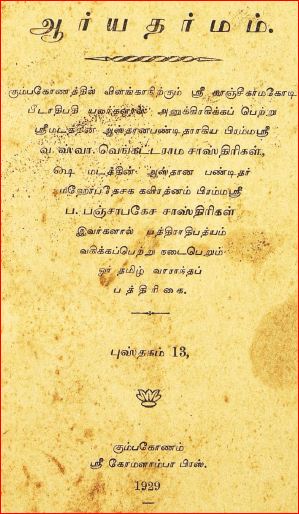 ஆர்யதர்மம்.
கும்பகோணத்தில் விளங்காநிற்கும் ஸ்ரீ காஞ்சிகாமகோடி
பீடாதிபதி யவர்களால் அனுக்ரஹிக்கப் பெற்று
ஸ்ரீமடத்தின் ஆஸ்தானபண்டிதராகிய பிரம்மஸ்ரீ
வெங்கட்டராம சாஸ்திரிகள்,
மடத்தின் ஆஸ்தான பண்டிதர்
மஹோபதேசக கவிரத்னம் பிரம்மஸ்ரீ
ப. பஞ்சாபகேச சாஸ்திரிகள்
இவர்களால் பத்திராதிபத்யம்
வகிக்கப்பெற்று நடைபெறும்
ஓர் தமிழ் வாராந்தப்
பத்திரிகை.
புஸ்தகம் 13,
கும்பகோணம்
ஸ்ரீ கோமளாம்பா பிரஸ்.
1929